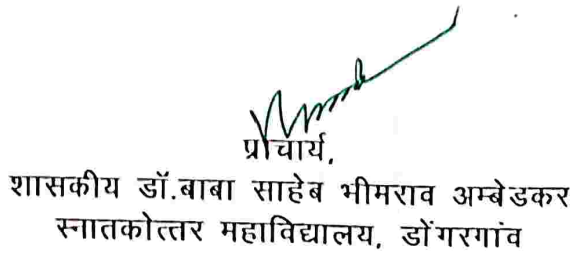 प्राचार्य,
शासकीय डॉ.बाबा साहेब भीमराव अम्बेडकर
स्नातकोत्तर महाविद्यालय, डोंगरगांव